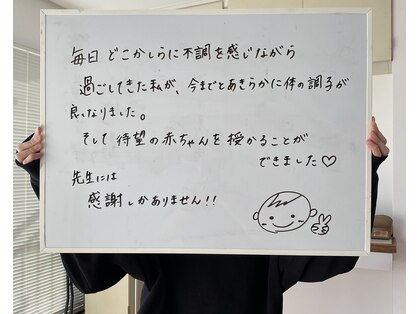 毎日 どこかしらに不調を感じながら
過ごしてきた私が、今までとあきらかに体の調子が
良くなりました。
そして 待望の赤ちゃんを 授かることが
できました♡
先生には
感謝しかありません!!